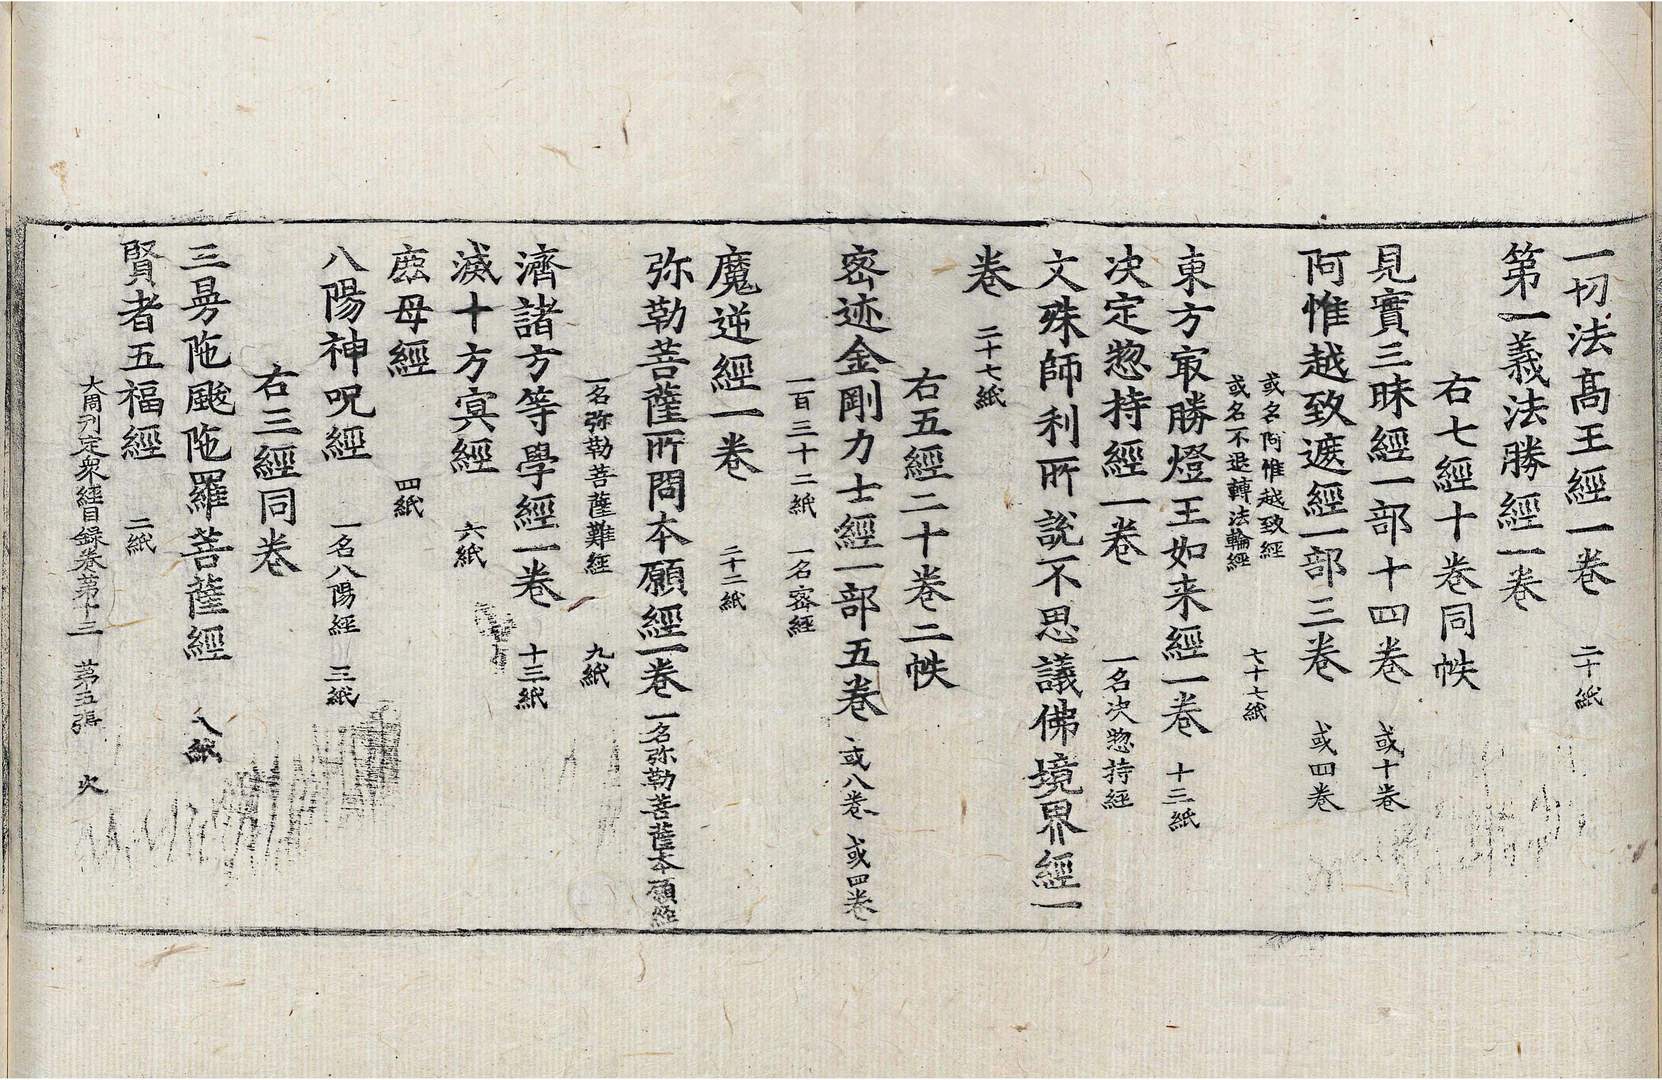 一切法髙王經一卷 二十紙
第一義法勝經一卷
右七經十卷同帙
見實三昧經一部十四卷 或十卷
阿惟越致遮經一部三卷 或四卷
或名阿惟越致經
或名不退轉法輪經 七十七紙
東方㝡勝燈王如来經一卷 十三紙
决定惣持經一卷 一名决惣持經
文殊師利所説不思議佛境界經一
卷 二十七紙
右五經二十卷二帙
密迹金剛力士經一部五卷 或八卷 或四卷
一百三十二紙 一名密經
魔逆經一卷 二十二紙
弥勒菩薩所問本願經一卷 一名弥勒菩薩本願經
一名弥勒菩薩難經 九紙
濟諸方等學經一卷 十三紙
滅十方㝠經 六紙
鹿母經 四紙
八陽神呪經 一名八陽經 三紙
右三經同卷
三曼陁颰陁羅菩薩經 八紙
賢者五福經 二紙
大周刊定衆經目録卷第十三 苐五張 火